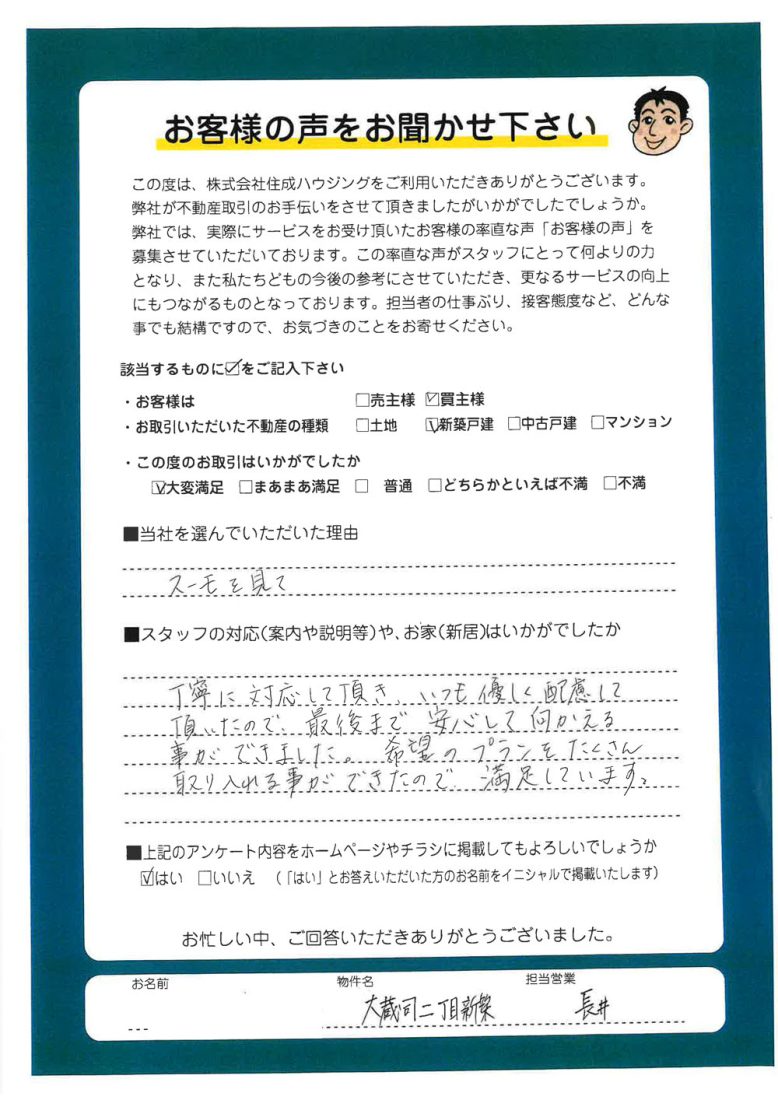 お客様の声をお聞かせ下さい
この度は、株式会社住成ハウジングをご利用いただきありがとうございます。
弊社が不動産取引のお手伝いをさせて頂きましたがいかがでしたでしょうか。
弊社では、実際にサービスをお受け頂いたお客様の率直な声「お客様の声」を
募集させていただいております。この率直な声がスタッフにとって何よりの力
となり、また私たちどもの今後の参考にさせていただき、更なるサービスの向上
にもつながるものとなっております。担当者の仕事ぶり、接客態度など、どんな
事でも結構ですので、お気づきのことをお寄せください。
該当するものに☑をご記入下さい
・お客様は □売主様 ☑買主様
・お取引いただいた不動産の種類 □土地 ☑新築戸建 □中古戸建 □マンション
・この度のお取引はいかがでしたか
☑大変満足 □まあまあ満足 □ 普通 □どちらかといえば不満 □不満
■当社を選んでいただいた理由
スーモを見て
■スタッフの対応(案内や説明等)や、お家(新居)はいかがでしたか
丁寧に対応して頂き、いつも優しく配慮して
頂いたので、最後まで安心して向かえる
事ができました。希望のプランをたくさん
取り入れる事ができたので、満足しています。
■上記のアンケート内容をホームページやチラシに掲載してもよろしいでしょうか
☑はい □いいえ (「はい」とお答えいただいた方のお名前をイニシャルで掲載いたします)
お忙しい中、ご回答いただきありがとうございました。
お名前 物件名 担当営業
大蔵司二丁目新築 長井